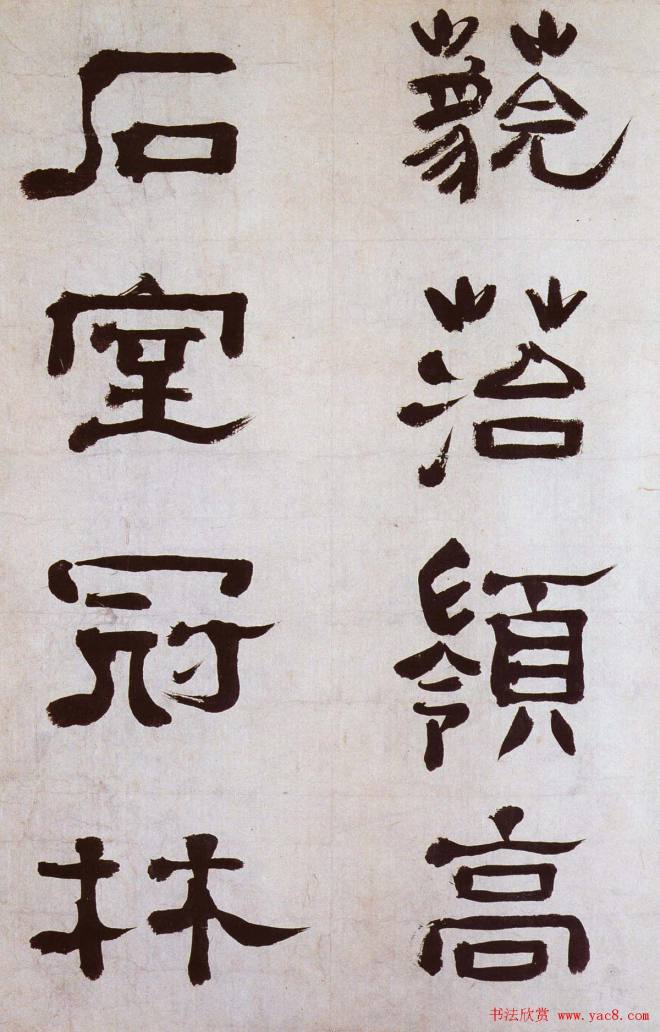 藐菭嶺高
石室冠林
书法欣赏 www.yac8.com